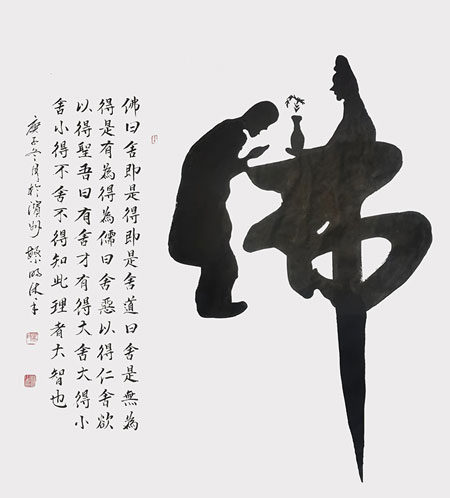 佛
佛曰舍即是得即是舍道曰舍是無為
得是有為得為儒曰舍惡以得仁舍欲
以得聖吾曰有舍才有得大舍大得小
舍小得不舍不得知此理者大智也
庚子冬月於濱州